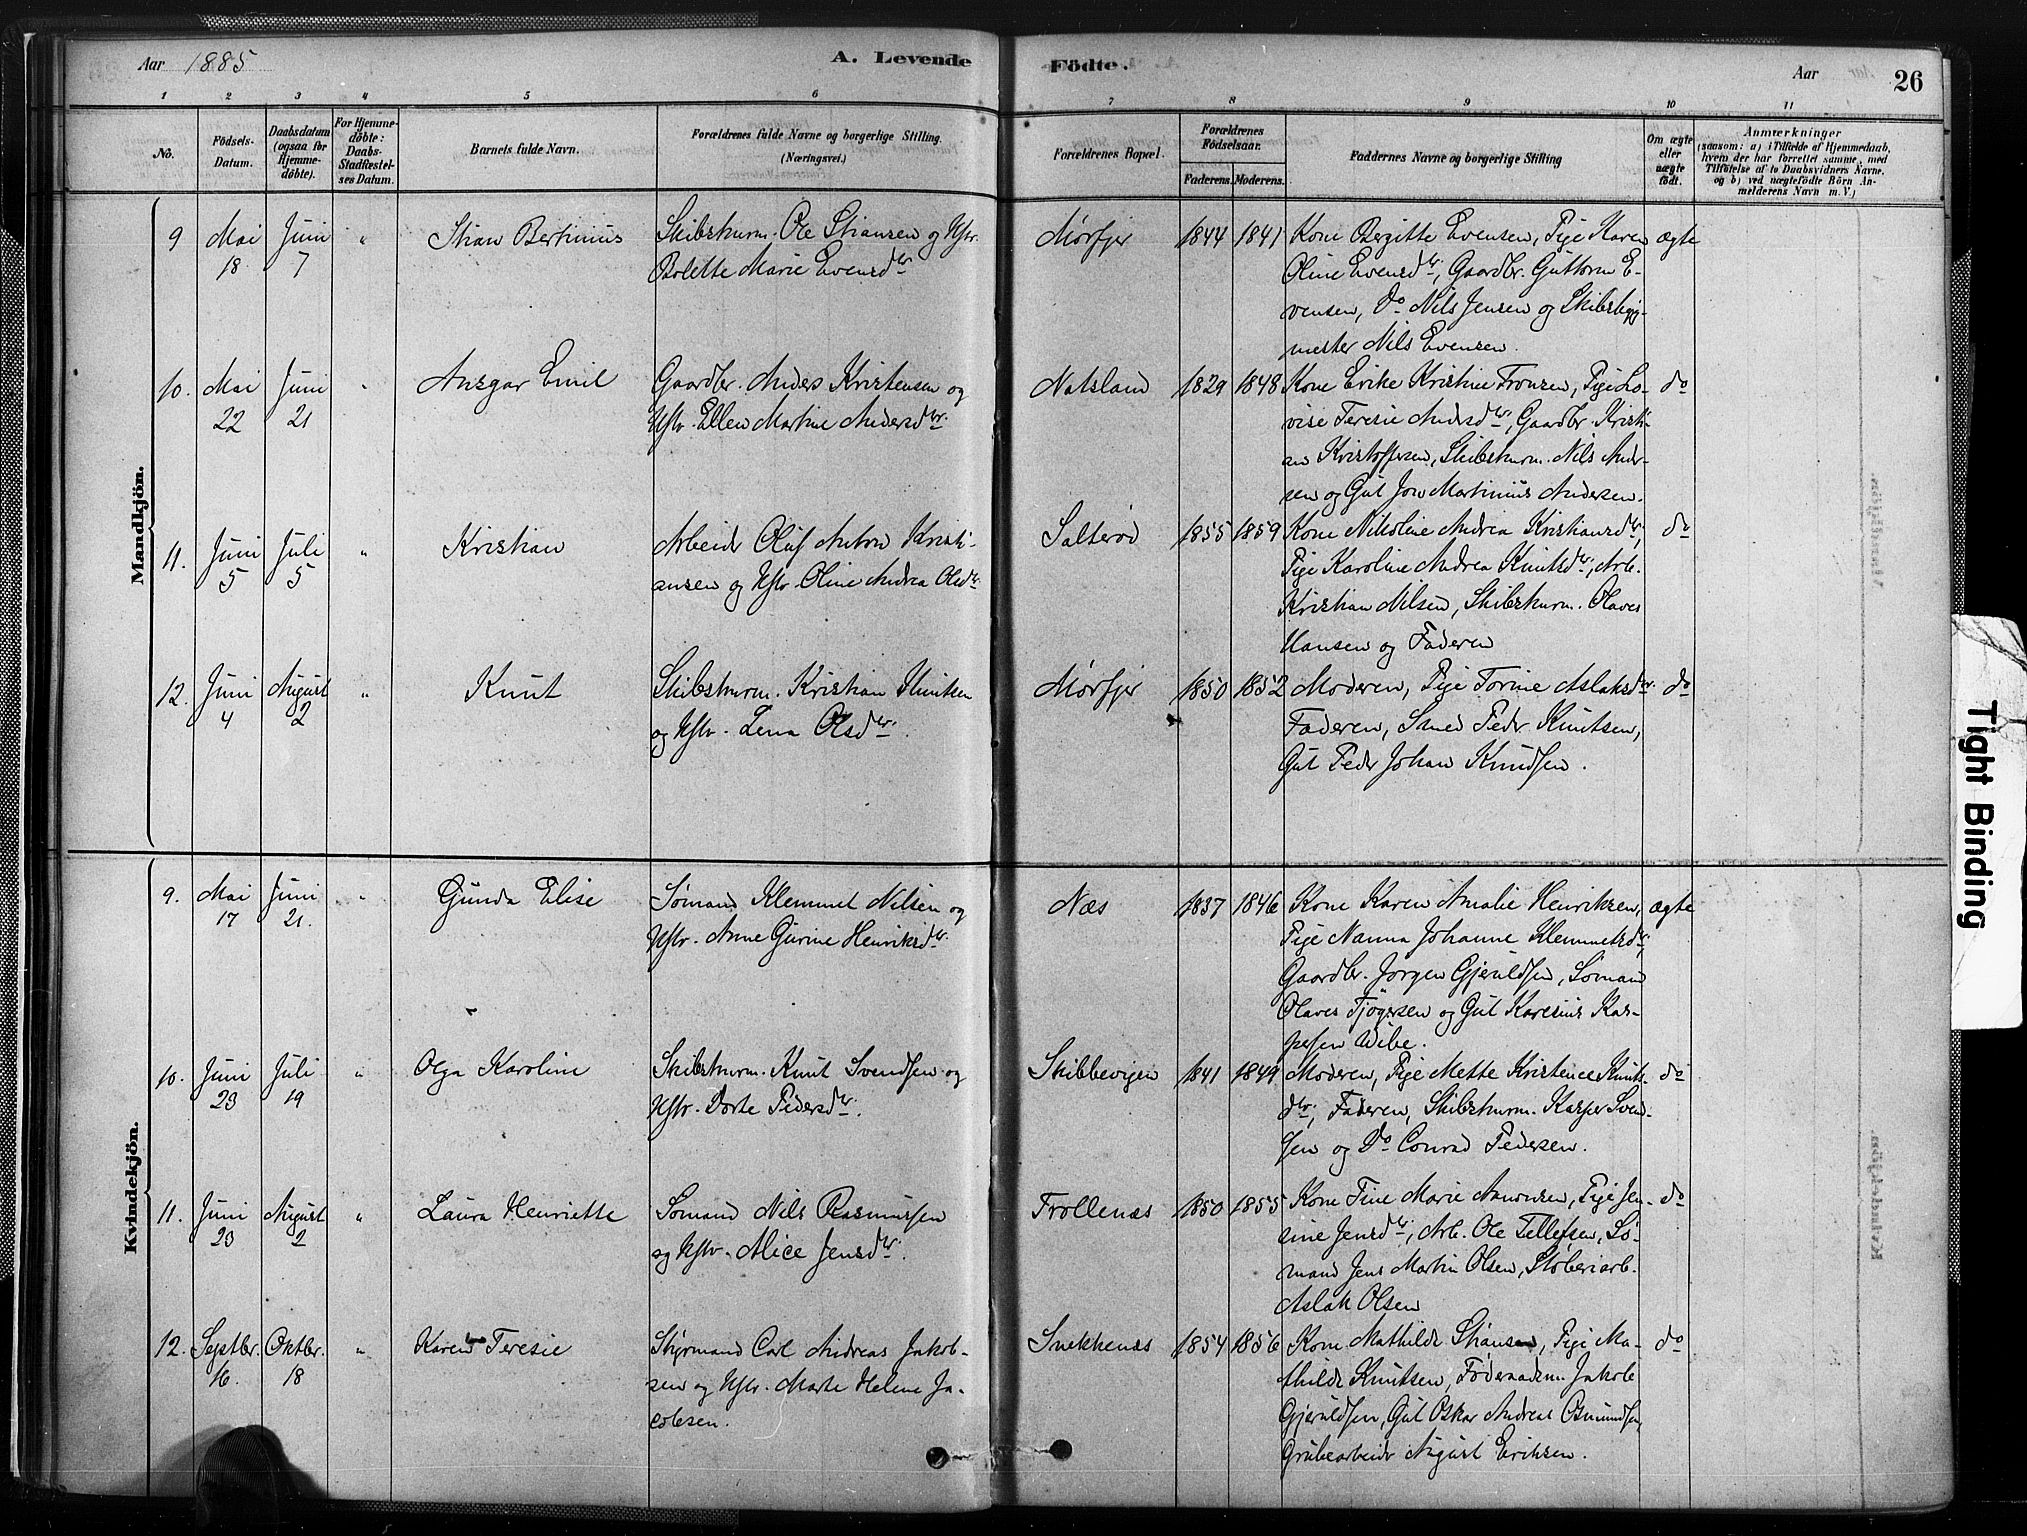 Aar 1885
A. Levende Födte.
Aar 26
1 2 3 4 5 6 7 8 9 10 11
No.
Födsels-Datum.
Daabsdatum (ogsaa for Hjemme-döbte).
For Hjemme-döbte: Daabs-Stadfæstel-ses Datum.
Barnets fulde Navn.
Forældrenes fulde Navne og borgerlige Stilling. (Næringsvei.)
Forældrenes Bopæl.
Forældrenes Födselsaar.
Faderens. Moderens.
Faddernes Navne og borgerlige Stilling
Om ægte eller uægte födt.
Anmærkninger
(saasom: a) i Tilfælde af Hjemmedaab, hvem der har forrettet samme, med Tilføielse af to Daabsvidners Navne, og b) ved uægtefödte Börn Anmelderens Navn m. V.)
Mandkjön.
9 Mai 18 Juni 7 " Stian Bertinius
Skibsturm. Ole Stiansen og Hstr.
Bolette Marie Evensdtr
Mörfjer 1844 1841
Kone Bergitte Evensen, Pige Karen ægte
Oline Evensdtr, Gaardbr. Guttorm E-
vensen, Do Nils Jensen og Skibsbyg-
mester Nils Evensen.
10. Mai 22 Juni 21 " Ansgar Emil
Gaardbr. Anders Kristensen og
Hstr. Ellen Martine Andersdtr.
Natsland 1829 1848
Kone Erike Kristine Fronsen, Pige Lo- do
vise Teresie Andersdtr, Gaardbr. Kristi-
an Kristoffersen, Skibsturm. Nils Ander-
sen og Gut Jon Martinius Andersen.
11. Juni 5 Juli 5 " Kristian
Arbeidr Oluf Anton Kristi-
ansen og Hstr. Oline Andrea Olsdtr.
Salteröd 1855 1859
Kone Nikoline Andrea Kristiansdtr, do
Pige Karoline Andrea Knutsdtr, Arb.
Kristian Nilsen, Skibsturm. Olaves
Hansen og Faderen
12. Juni 4 August 2 " Knut
Skibsturm. Kristian Knutsen
og Hstr. Lena Olsdtr.
Mörfjer 1850 1852
Moderen, Pige Torine Aslaksdtr. do
Faderen, Smed Pedr Knutsen,
Gut Peder Johan Knudsen.
Kvindekjön.
9. Mai 17 Juni 21. " Gunda Elise
Sömand Klemmet Nilsen og
Hstr. Anne Gurine Henriksdtr.
Næs 1837 1846
Kone Karen Amalie Henriksen, ægte
Pige Nanna Johanne Klemmetsdtr,
Gaardbr. Jörgen Gjeruldsen, Sömand
Olaves Tjögersen og Gut Karenius Kas-
persen Wibe.
10. Juni 23 Juli 19 " Olga Karoline
Skibsturm. Knut Svendsen og
Hstr. Dorte Pedersdtr.
Skibbevigen 1841 1849
Moderen, Pige Mette Kristence Knuts- do
dtr, Faderen, Skibsturm. Kasper Svend-
sen og Do Conrad Pedersen.
11. Juni 23 August 2 " Laura Henriette
Sömand Nils Rasmussen
og Hstr. Alice Jensdtr.
Trollenæs 1850 1855
Kone Tine Marie Aanonsen, Pige Jen- do
sine Jensdtr, Arb. Ole Tellefsen, Sö-
mand Jens Martin Olsen, Stöberiarb.
Aslak Olsen
12. Septbr. 16. Oktbr. 18 " Karen Teresie
Styrmand Carl Andreas Jakob-
sen og Hstr. Marte Helene Ja-
cobsen.
Snekkenæs 1854 1856
Kone Mathilde Stiansen, Pige Ma- do
thilde Knutsen, Föderaadsm. Jakob
Gjeruldsen, Gut Oskar Andreas Osmundsen,
Grubearbeidr August Eriksen.
Tight Binding